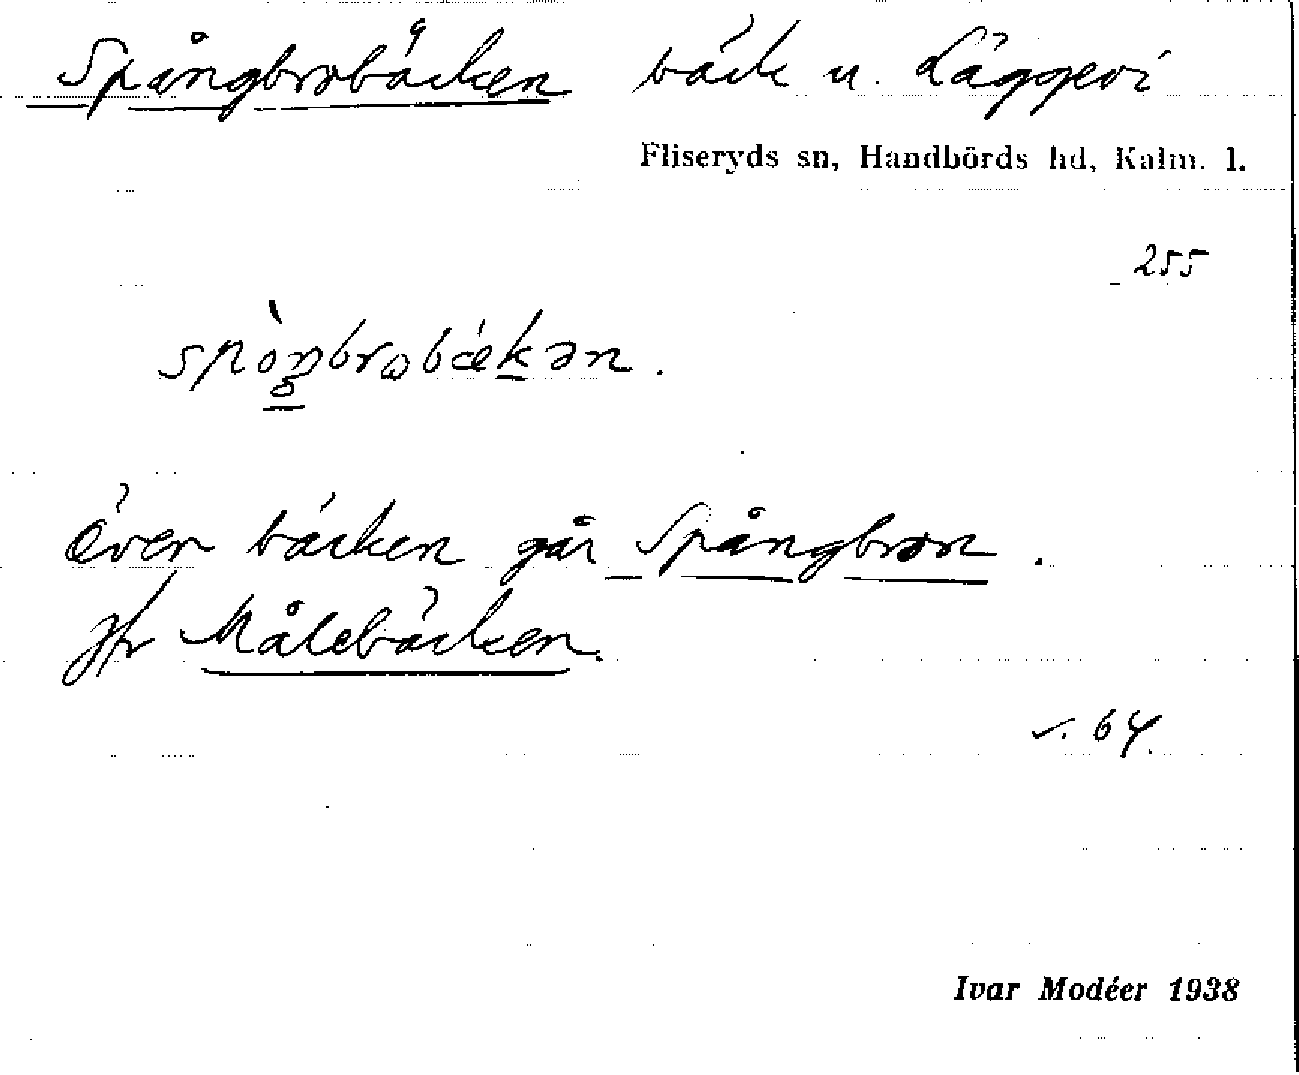 Spångbrobäcken bäck u. Läggevi
Fliseryds sn, Handbörds hd, Kalm. l.
255
spòŋbrobækən.
Över bäcken går Spångbron.
Jfr Målebäcken.
s. 64.
Ivar Modéer 1938